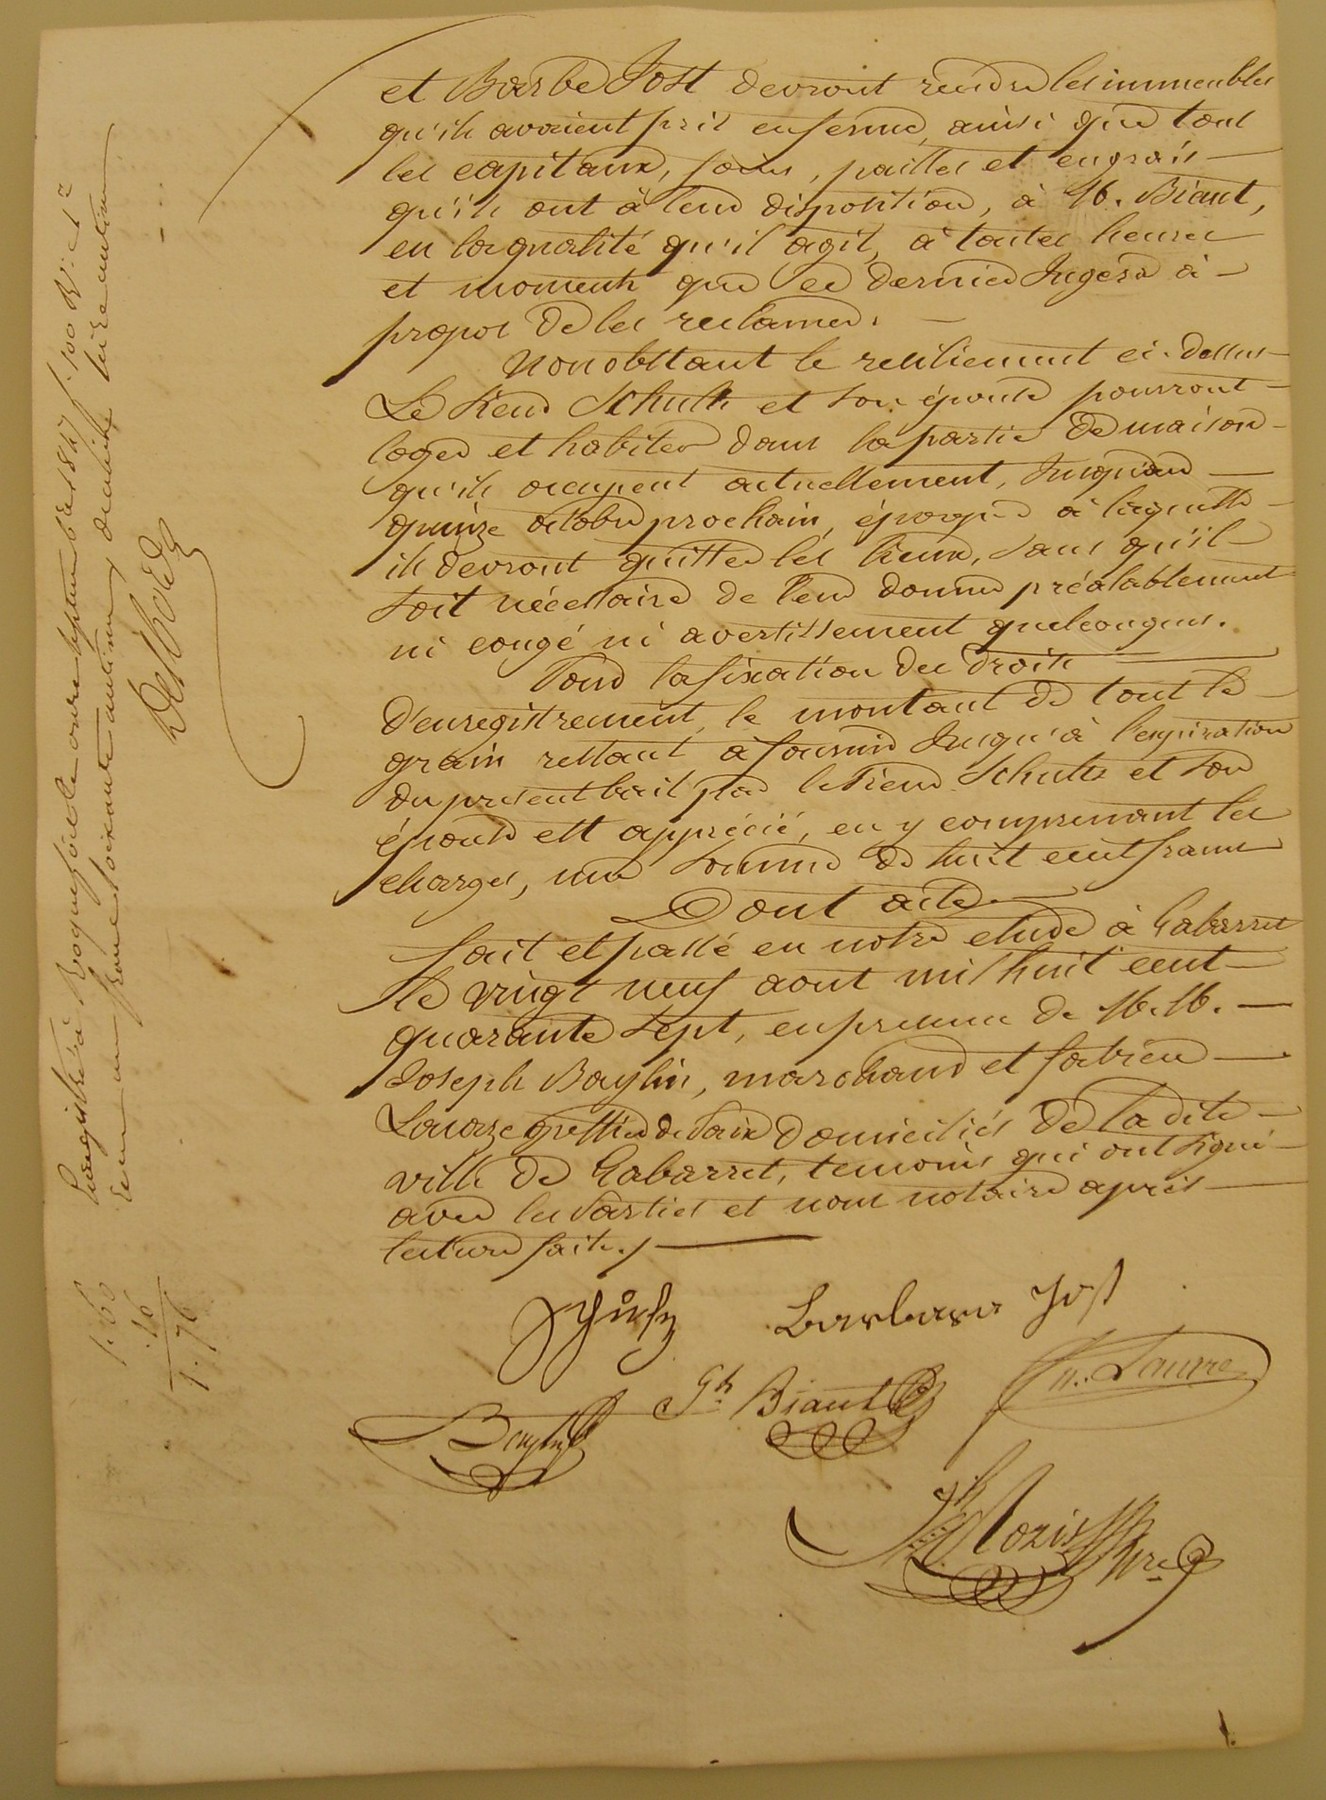 et Barbe Jost devront rendre les immeubles
qu'ils avaient pris en ferme, ainsi que tous
les capitaux, foins, pailles et engrais
qu'ils ont à leur disposition, à M. Biaut,
en la qualité qu'il agit, à toutes heures
et moments que ce dernier Jugera à
propos de les reclamer.
Nonobstant le resiliement ci-dessus
Le Sieur Schultz et son épouse pourront
loger et habiter dans la partie de maison
qu'ils occupent actuellement, Jusqu'au
quinze octobre prochain, époque à laquelle
ils devront quitter les lieux, sans qu'il
soit nécessaire de leur donner préalablement
ni congé ni avertissement quelconques.
Pour la fixation des droits
d'enregistrement, le montant de tout le
grain restant à fournir Jusqu'à l'expiration
du present bail par le Sieur Schultz et son
épouse est apprécié, en y comprenant les
charges, une somme de huit cent francs
Dont acte
fait et passé en notre etude à Gabarret
le vingt neuf aout mil huit cent
quarante sept, en presence de M.M.
Joseph Baylin, marchand et fabien
greffier de Paix domiciliés de la dite
ville de Gabarret, temoins qui ont signé
avec les Parties et nous notaire après
lecture faite./
Schultz Barbara Jost
Jh. Biaut
Baylin
Enregistré à Roquefort le onze septembre 1847 f. 100
un franc soixante centimes, decime seize centimes
1.60
.16
1.76